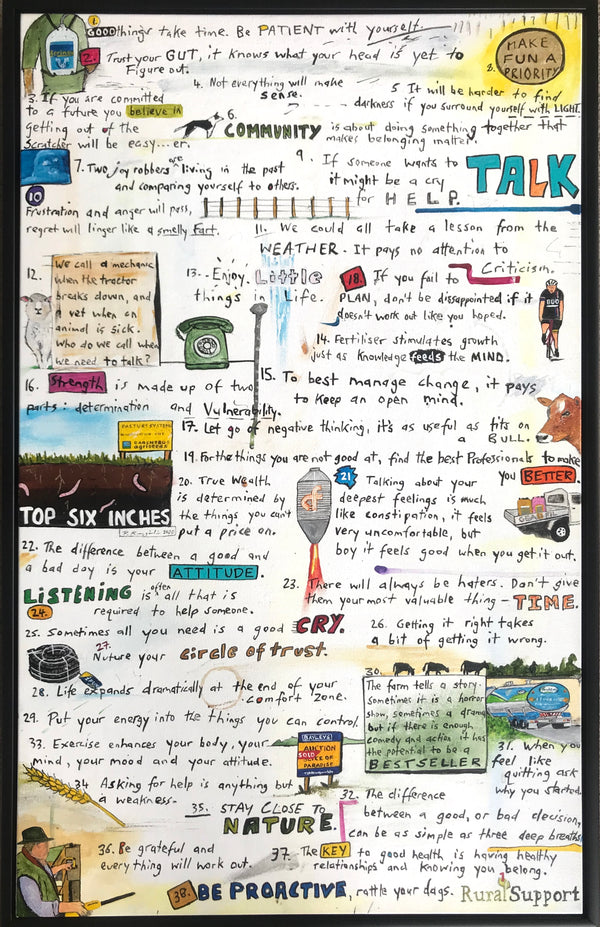 1. GOOD things take time. Be PATIENT with yourself.
2. Trust your GUT, it knows what your head is yet to
Figure out.
MAKE
FUN A
PRIORITY
3. If you are committed
to a future you believe in
getting out of the
Scratcher will be easy...er.
4. Not everything will make
sense.
5 It will be harder to find
darkness if you surround yourself with LIGHT.
6.
COMMUNITY is about doing something together that
makes belonging matter.
7. Two joy robbers are living in the past
and comparing yourself to others.
9. If someone wants to TALK
it might be a cry
for HELP.
10
Frustration and anger will pass,
regret will linger like a smelly fart.
11. We could all take a lesson from the
WEATHER. It pays no attention to
Criticism.
12.
We call a mechanic
when the tractor
breaks down, and
a vet when an
animal is sick.
Who do we call when
we need to talk?
13. Enjoy Little
things in Life.
18. If you fail to
PLAN, don't be dissappointed if it
doesn't work out like you hoped.
14. Fertiliser stimulates growth
just as knowledge feeds the MIND.
15. To best manage change, it pays
to keep an open mind.
16. Strength is made up of two
parts: determination and Vulnerability.
17. Let go of negative thinking, it's as useful as tits on
a BULL.
19. For the things you are not good at, find the best Professionals to make
you BETTER.
TOP SIX INCHES
20. True Wealth
is determined by
the things you can't
put a price on.
21 Talking about your
deepest feelings is much
like constipation, it feels
very uncomfortable, but
boy it feels good when you get it out.
22. The difference between a good and
a bad day is your ATTITUDE.
23. There will always be haters. Don't give
them your most valuable thing - TIME.
LISTENING is often all that is
24. required to help someone.
25. Sometimes all you need is a good CRY.
26. Getting it right takes
a bit of getting it wrong.
27. Nuture your circle of trust.
28. Life expands dramatically at the end of your
comfort zone.
29. Put your energy into the things you can control.
30.
The farm tells a story.
Sometimes it is a horror
show, sometimes a drama
but if there is enough
comedy and action it has
the potential to be a
BESTSELLER
31. When you
feel like
quitting ask
why you started.
33. Exercise enhances your body, your
mind, your mood and your attitude.
BAYLEYS
AUCTION
SOLD
PARADISE
34 Asking for help is anything but
a weakness.
32. The difference
between a good, or bad decision,
can be as simple as three deep breaths
35. STAY CLOSE TO
NATURE.
36. Be grateful and
everything will work out.
37. The KEY to good health is having healthy
relationships and knowing you belong.
38. BE PROACTIVE, rattle your dags.
Rural Support